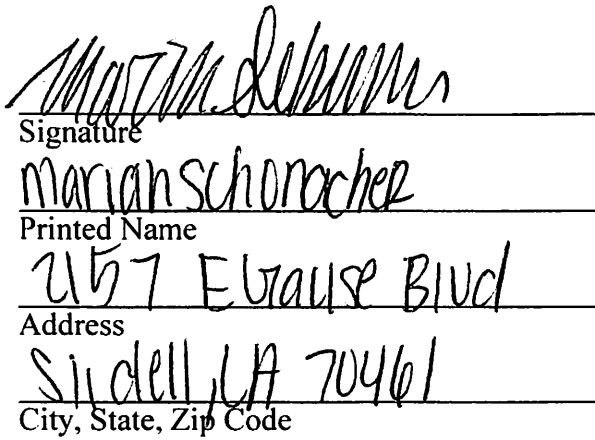 Signature
mariah schonacher
Printed Name
2157 E Gause Blvd
Address
Slidell, LA 70461
City, State, Zip Code